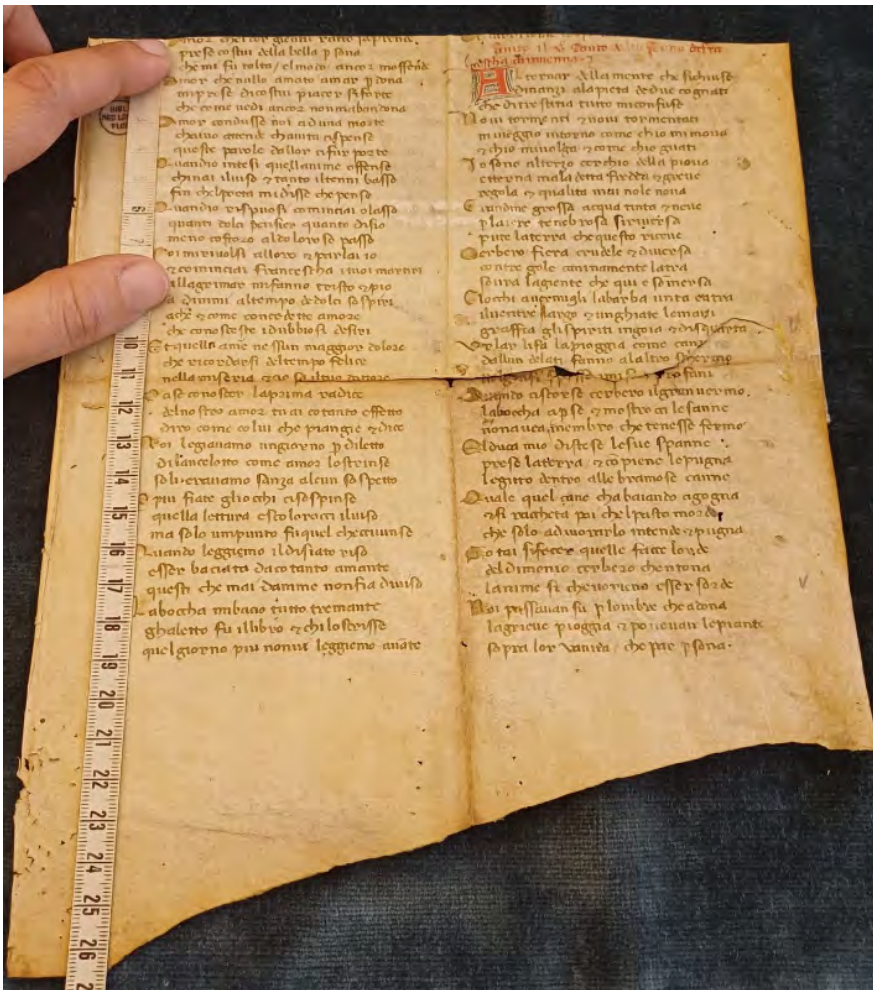 Amor chel cor gientil ratto saprena
prese costui della bella p sona
che mi fu tolta / el modo ancor moffende
Amor che nullo amato amar p dona
mi prese di costui piacer si forte
che come vedi ancor non mabandona
Amor condusse noi ad una morte
chaina attende chauita ci spense
queste parole dallor ci fur porte
Quandio intesi quellanime offense
chinai il uiso & tanto il tenni basso
fin chelpoeta mi disse che pense
Quandio rispuosi cominciai o lasso
quanti dolci pensier quanto disio
meno costoro al doloroso passo
Poi mi riuolsi alloro & parlai io
& cominciai francescha i tuoi martiri
allagrimar mi fanno tristo & pio
a dimmi al tempo de dolci sospiri
ache & come concedette amore
che conosceste i dubbiosi desiri
Et quella ame nessun maggior dolore
che ricordarsi del tempo felice
nella miseria & cio sa il tuo dottore
a conoscer la prima radice
del nostro amor tu ai cotanto effetto
diro come colui che piangie & dice
Noi legiauamo un giorno p diletto
di lancelotto come amor lo strinse
soli erauamo sanza alcun sospetto
p piu fiate gliocchi ci sospinse
quella lettura & scolorocci il uiso
ma solo un punto fu quel che ci uinse
Quando leggiemo il disiato riso
esser baciata da cotanto amante
questi che mai da mme non fia diuiso
La boccha mi bacio tutto tremante
ghaletto fu il libro & chi lo scrisse
quel giorno piu nonui leggiemo auāte
Al tornar della mente che si chiuse
dinanzi alapieta de due cognati
che di trestitia tutto mi confuse
Noui tormenti & noui tormentati
mi ueggio intorno come chio mi moua
& chio mi uolga & come chio guati
Io sono al terzo cerchio della pioua
etterna maladetta fredda & greue
regola & qualita mai nole noua
Grandine grossa acqua tinta & neue
p laiere tenebrosa si riuersa
pute la terra che questo riceue
Cerbero fiera crudele & diuersa
con tre gole caninamente latra
soura la giente che qui e somersa
Gliocchi a uermigli la barba unta & atra
il uentre largo & unghiate le mani
graffia gli spiriti ingoia & disquatra
Vrlar li fa la pioggia come cani
dallun de lati fanno alaltro schermo
Quando ci scorse cerbero il gran uermo.
la boccha apse & mostrocci le sanne
non auea membro che tenesse fermo
El duca mio distese le sue spanne
prese la terra & cō piene le pugna
le gitto dentro alle bramose canne
Quale quel cane cha baiando agogna
& si racheta poi chel pasto morde
che solo a diuorarlo intende & pugna
Co tai si fecer quelle faccie lorde
del dimonio cerbero chentona
lanime si che uorieno esser sorde
Noi passauan su p lombre che adona
la grieue pioggia & poneuan le piante
sopra lor uanita / che par p sona.
10
11
12
13
14
15
16
17
18
19
20
21
22
23
24
25
26